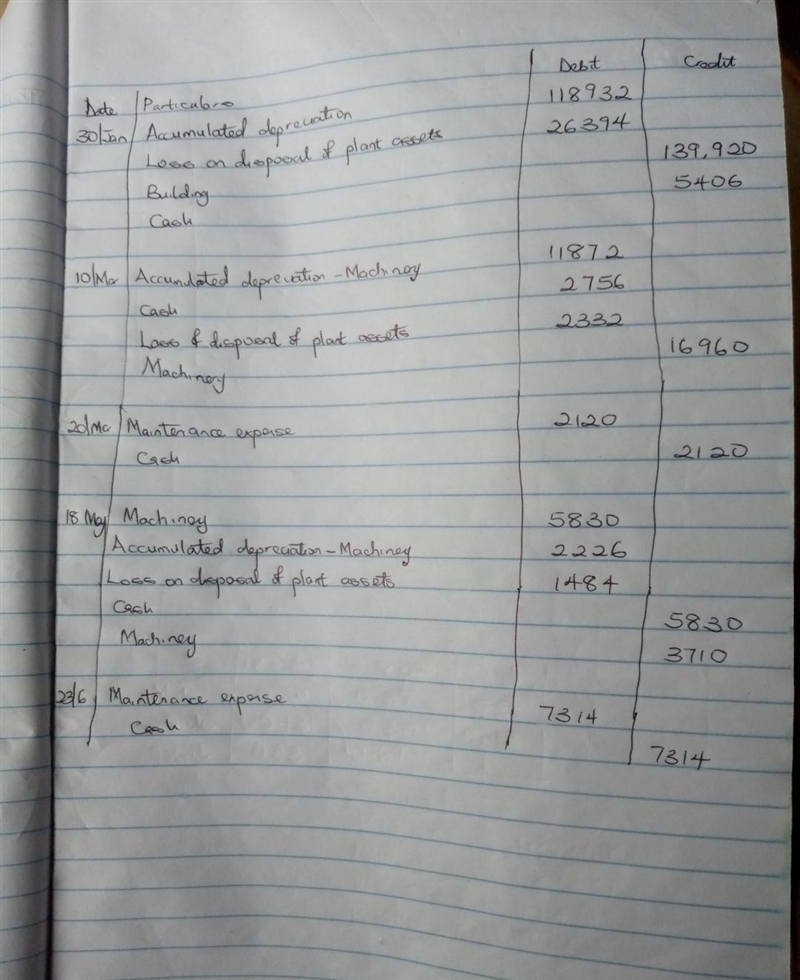 Debit Credit
Date Particulars
30/Jan Accumulated depreciation 118932
Loss on disposal of plant assets 26394
Building 139,920
Cash 5406
10/Mar Accumulated depreciation - Machinery 11872
Cash 2756
Loss of disposal of plant assets 2332
Machinery 16960
20/Mar Maintenance expense 2120
Cash 2120
18 May Machinery 5830
Accumulated depreciation - Machinery 2226
Loss on disposal of plant assets 1484
Cash 5830
Machinery 3710
23/6 Maintenance expense 7314
Cash 7314